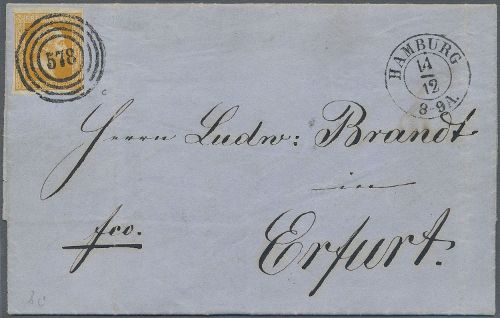 578
HAMBURG
14
12
8-9A.
Herrn Ludw: Brandt
in
fco.
Erfurt.